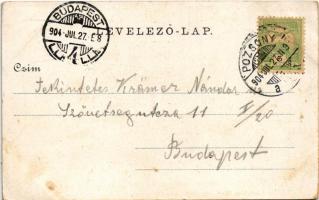 BUDAPEST
904 JUL. 27. E 8
LEVELEZŐ-LAP.
POZSONY
904 JUL. 26
a
Czim
Tekintetes Krämer Nándor
Szövetség utcza 11 I/20
Budapest